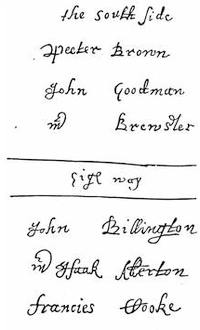 the south side
Peeter Brown
John Goodman
mr Brewster
high way
John Billington
mr Isaak Allerton
francies Cooke